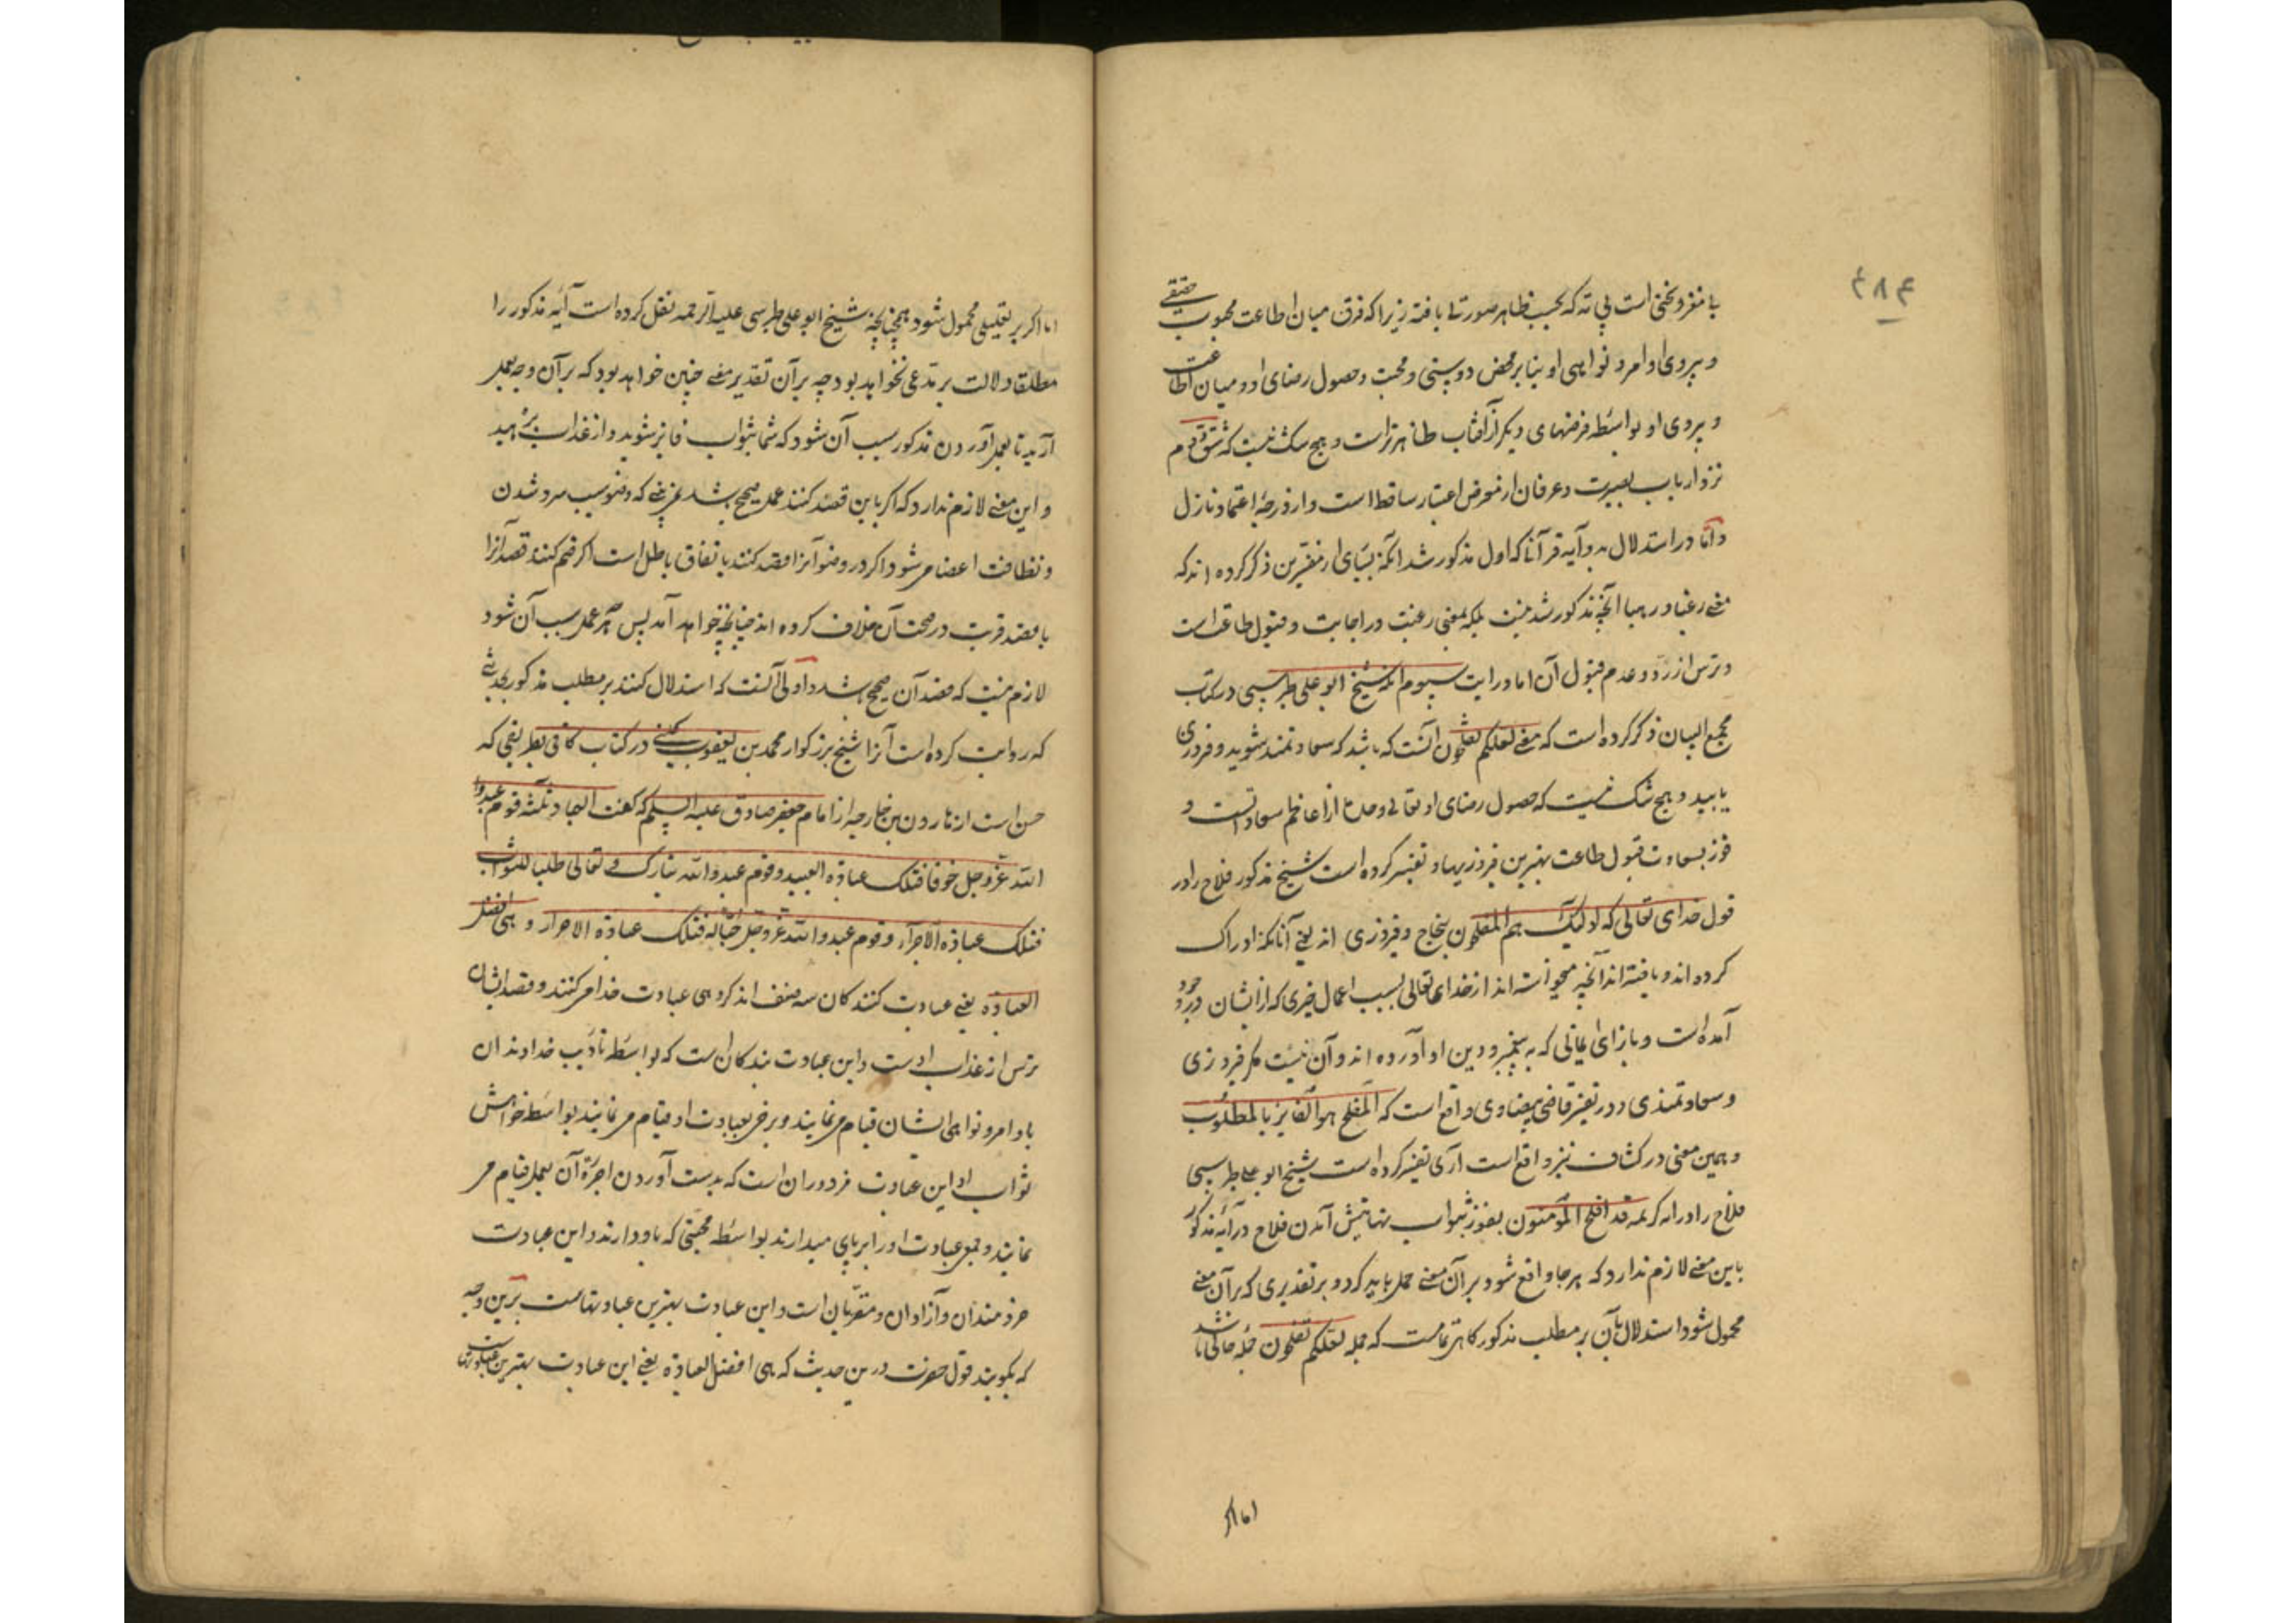 ۲۸۴
با مغز و نختی است بی ته که بحسب ظاهر صورتی یافته زیرا که فرق میان اطاعت محبوب حقیقی
و پیروی اوامر و نواهی او بنابر محض دوستی و محبت و حصول رضای او و میان اطاعت
و پیروی او بواسطه غرضهای دیگر از آفتاب ظاهرتر است و هیچ شک نیست که شق دوم
نزد ارباب بصیرت و عرفان از معرض اعتبار ساقط است و از درجهٔ اعتماد نازل
و امّا در استدلال به دو آیه قرآنا که اول مذکور شد آنکه بسیاری از مفسّرین ذکر کرده اند که
معنی رغبا و رهبا آنچه مذکور شد نیست بلکه بمعنی رغبت در اجابت و قبول طاعتست
و ترس از ردّ و عدم قبول آن اما در آیت سیوم آنکه شیخ ابو علی طبرسی در کتاب
مجمع البیان ذکر کرده است که معنی لعلکم تفلحون آنست که باشد که سعادتمند شوید و فیروزی
یابید و هیچ شک نیست که حصول رضای او تعالی و مدح از اعاظم سعاداتست و
فوز بسعادت قبول طاعت بهترین فیروزیها و تفسیر کرده است شیخ مذکور فلاح را در
قول خدای تعالی که اولیک هم المفلحون بنجاح و فیروزی اند یعنی آنانکه ادراک
کرده اند و یافته اند آنچه میخواسته اند از خدای تعالی بسبب اعمال خیری که از ایشان در وجود
آمده است و بازای ایمانی که به پیغمبر و دین او آورده اند و آن نیست مگر فیروزی
و سعادتمندی و در تفسیر قاضی بیضاوی واقع است که المفلح هو الفایز بالمطلوب
و همین معنی در کشاف نیز واقع است آری تفسیر کرده است شیخ ابو علی طبرسی
فلاح را در آیه کریمه قد افلح المؤمنون بفوز بثواب نهایتش آمدن فلاح در آیه مذکور
باین معنی لازم ندارد که هر جا واقع شود بر آن معنی حمل باید کرد و بر تقدیری که بر آن معنی
محمول شود استدلال بآن بر مطلب مذکور گاهی تمامست که جمله لعلکم تفلحون جمله حالی باشد
اما اگر
اما اگر بر تعلیلی محمول شود همچنانچه شیخ ابو علی طبرسی علیه الرحمه نقل کرده است آیه مذکور را
مطلقا دلالت بر مدعی نخواهد بود چه بر آن تقدیر معنی چنین خواهد بود که بر آن وجه بعمل
آرید تا بعمل آوردن مذکور سبب آن شود که شما بثواب فایز شوید و از عذاب برهید
و این معنی لازم ندارد که اگر باین قصد کنند عمل صحیح باشد نمی بینی که وضو سبب سرد شدن
و نظافت اعضا میشود و اگر در وضو آنرا قصد کنند باتفاق باطل است اگر ضم کنند قصد آنرا
با قصد قربت در صحت آن خلاف کرده اند چنانچه خواهد آمد پس هر عمل سبب آن شود
لازم نیست که قصد آن صحیح باشد و اولی آنست که استدلال کنند بر مطلب مذکور بحدیثی
که روایت کرده است آنرا شیخ بزرگوار محمد بن یعقوب کلینی در کتاب کافی بطریقی که
حسن است از هارون بن خارجه از امام جعفر صادق علیه السلم که گفت العباد ثلثه قوم عبدوا
الله عزّوجل خوفا فتلک عبادة العبید و قوم عبدوا الله تبارک و تعالی طلبا للثواب
فتلک عبادة الاجرآء و قوم عبدوا الله عزّوجل حبّا له فتلک عبادة الاحرار و هی افضل
العبادة یعنی عبادت کنندگان سه صنف اند گروهی عبادت خدا میکنند و قصد ایشان
ترس از عذاب اوست و این عبادت بندگان است که بواسطه تأدیب خداوندان
باوامر و نواهی ایشان قیام مینمایند و برخی بعبادت او قیام مینمایند بواسطه خواهش
ثواب او این عبادت مزدوران است که بدست آوردن اجرة آن بعمل قیام می
نمایند و جمعی عبادت او را برپای میدارند بواسطه محبتی که باو دارند و این عبادت
خردمندان و آزادان و مقرّبان است و این عبادت بهترین عبادتهاست برین وجه
که بگویند قول حضرت درین حدیث که هی افضل العبادة یعنی این عبادت بهترین عبادتهاست